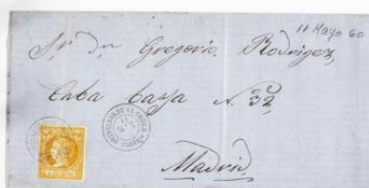 11 Mayo 60
Sr Dn Gregorio Rodrigez
Caba baja N. 32
Madrid